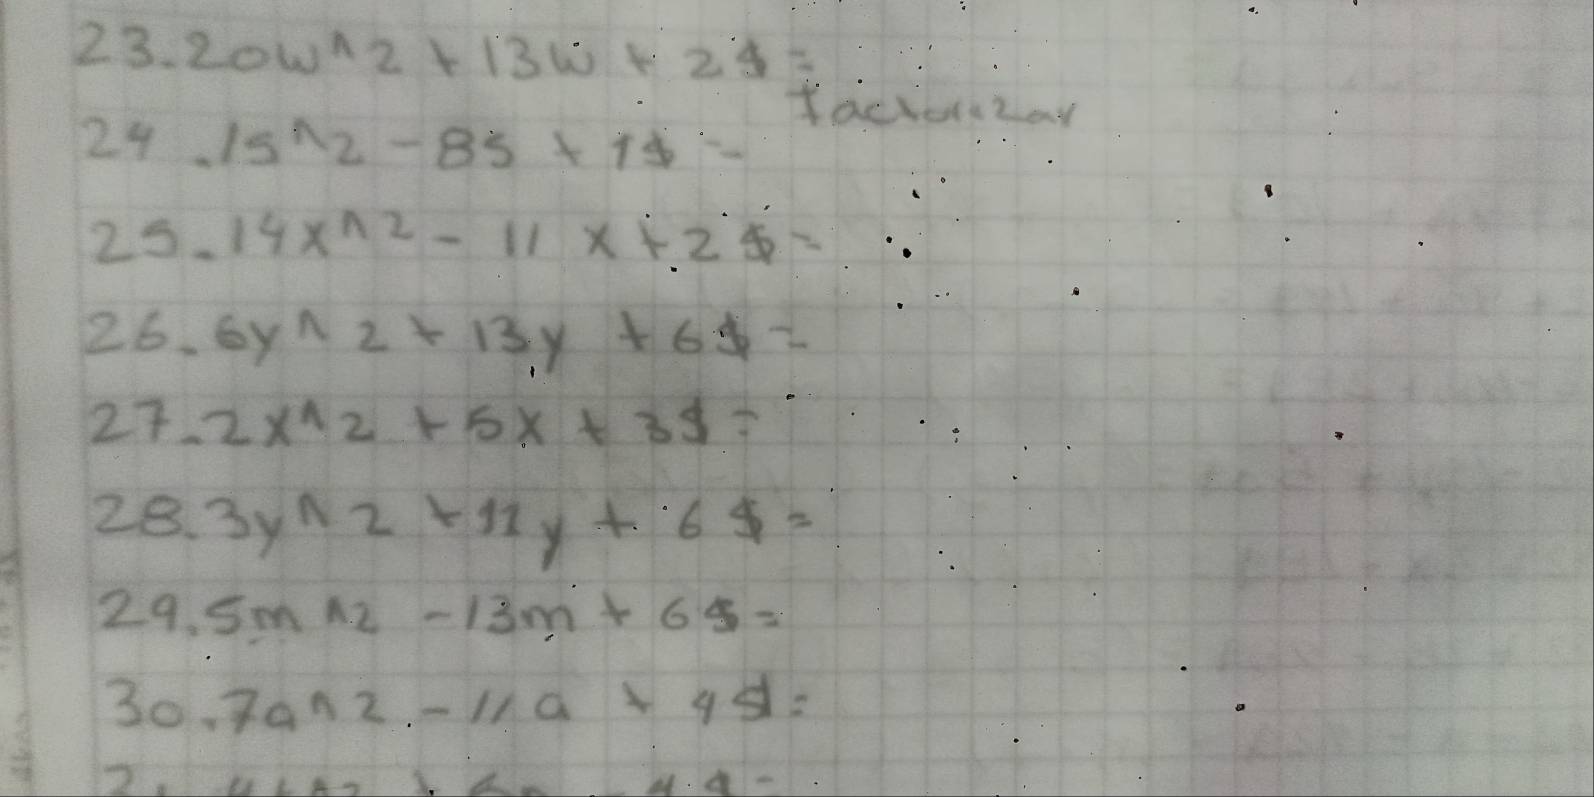 23.20w^2 + 13w + 2$=
factorizar
24.15^2 - 8s + 1$=
25.14x^2 - 11x + 2$=
26.6y^2 + 13y + 6$=
27.2x^2 + 5x + 3$=
28.3y^2 + 11y + 6$=
29.5m^2 - 13m + 6$=
30.7a^2 - 11a + 4$=